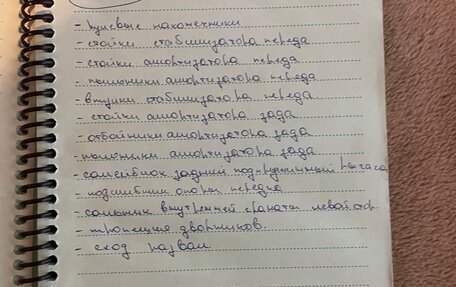 - рулевые наконечники
- стойки стабилизатора переда
- стойки амортизатора переда
- пыльники амортизатора переда
- втулки стабилизатора переда
- стойки амортизатора зада
- отбойники амортизатора зада
- пыльники амортизатора зада
- сайлентблок задний подпружинный рычага
- подшибник опоры передка
- сальник внутренней гранаты левой стор
- трапеция дворников.
- сход развал